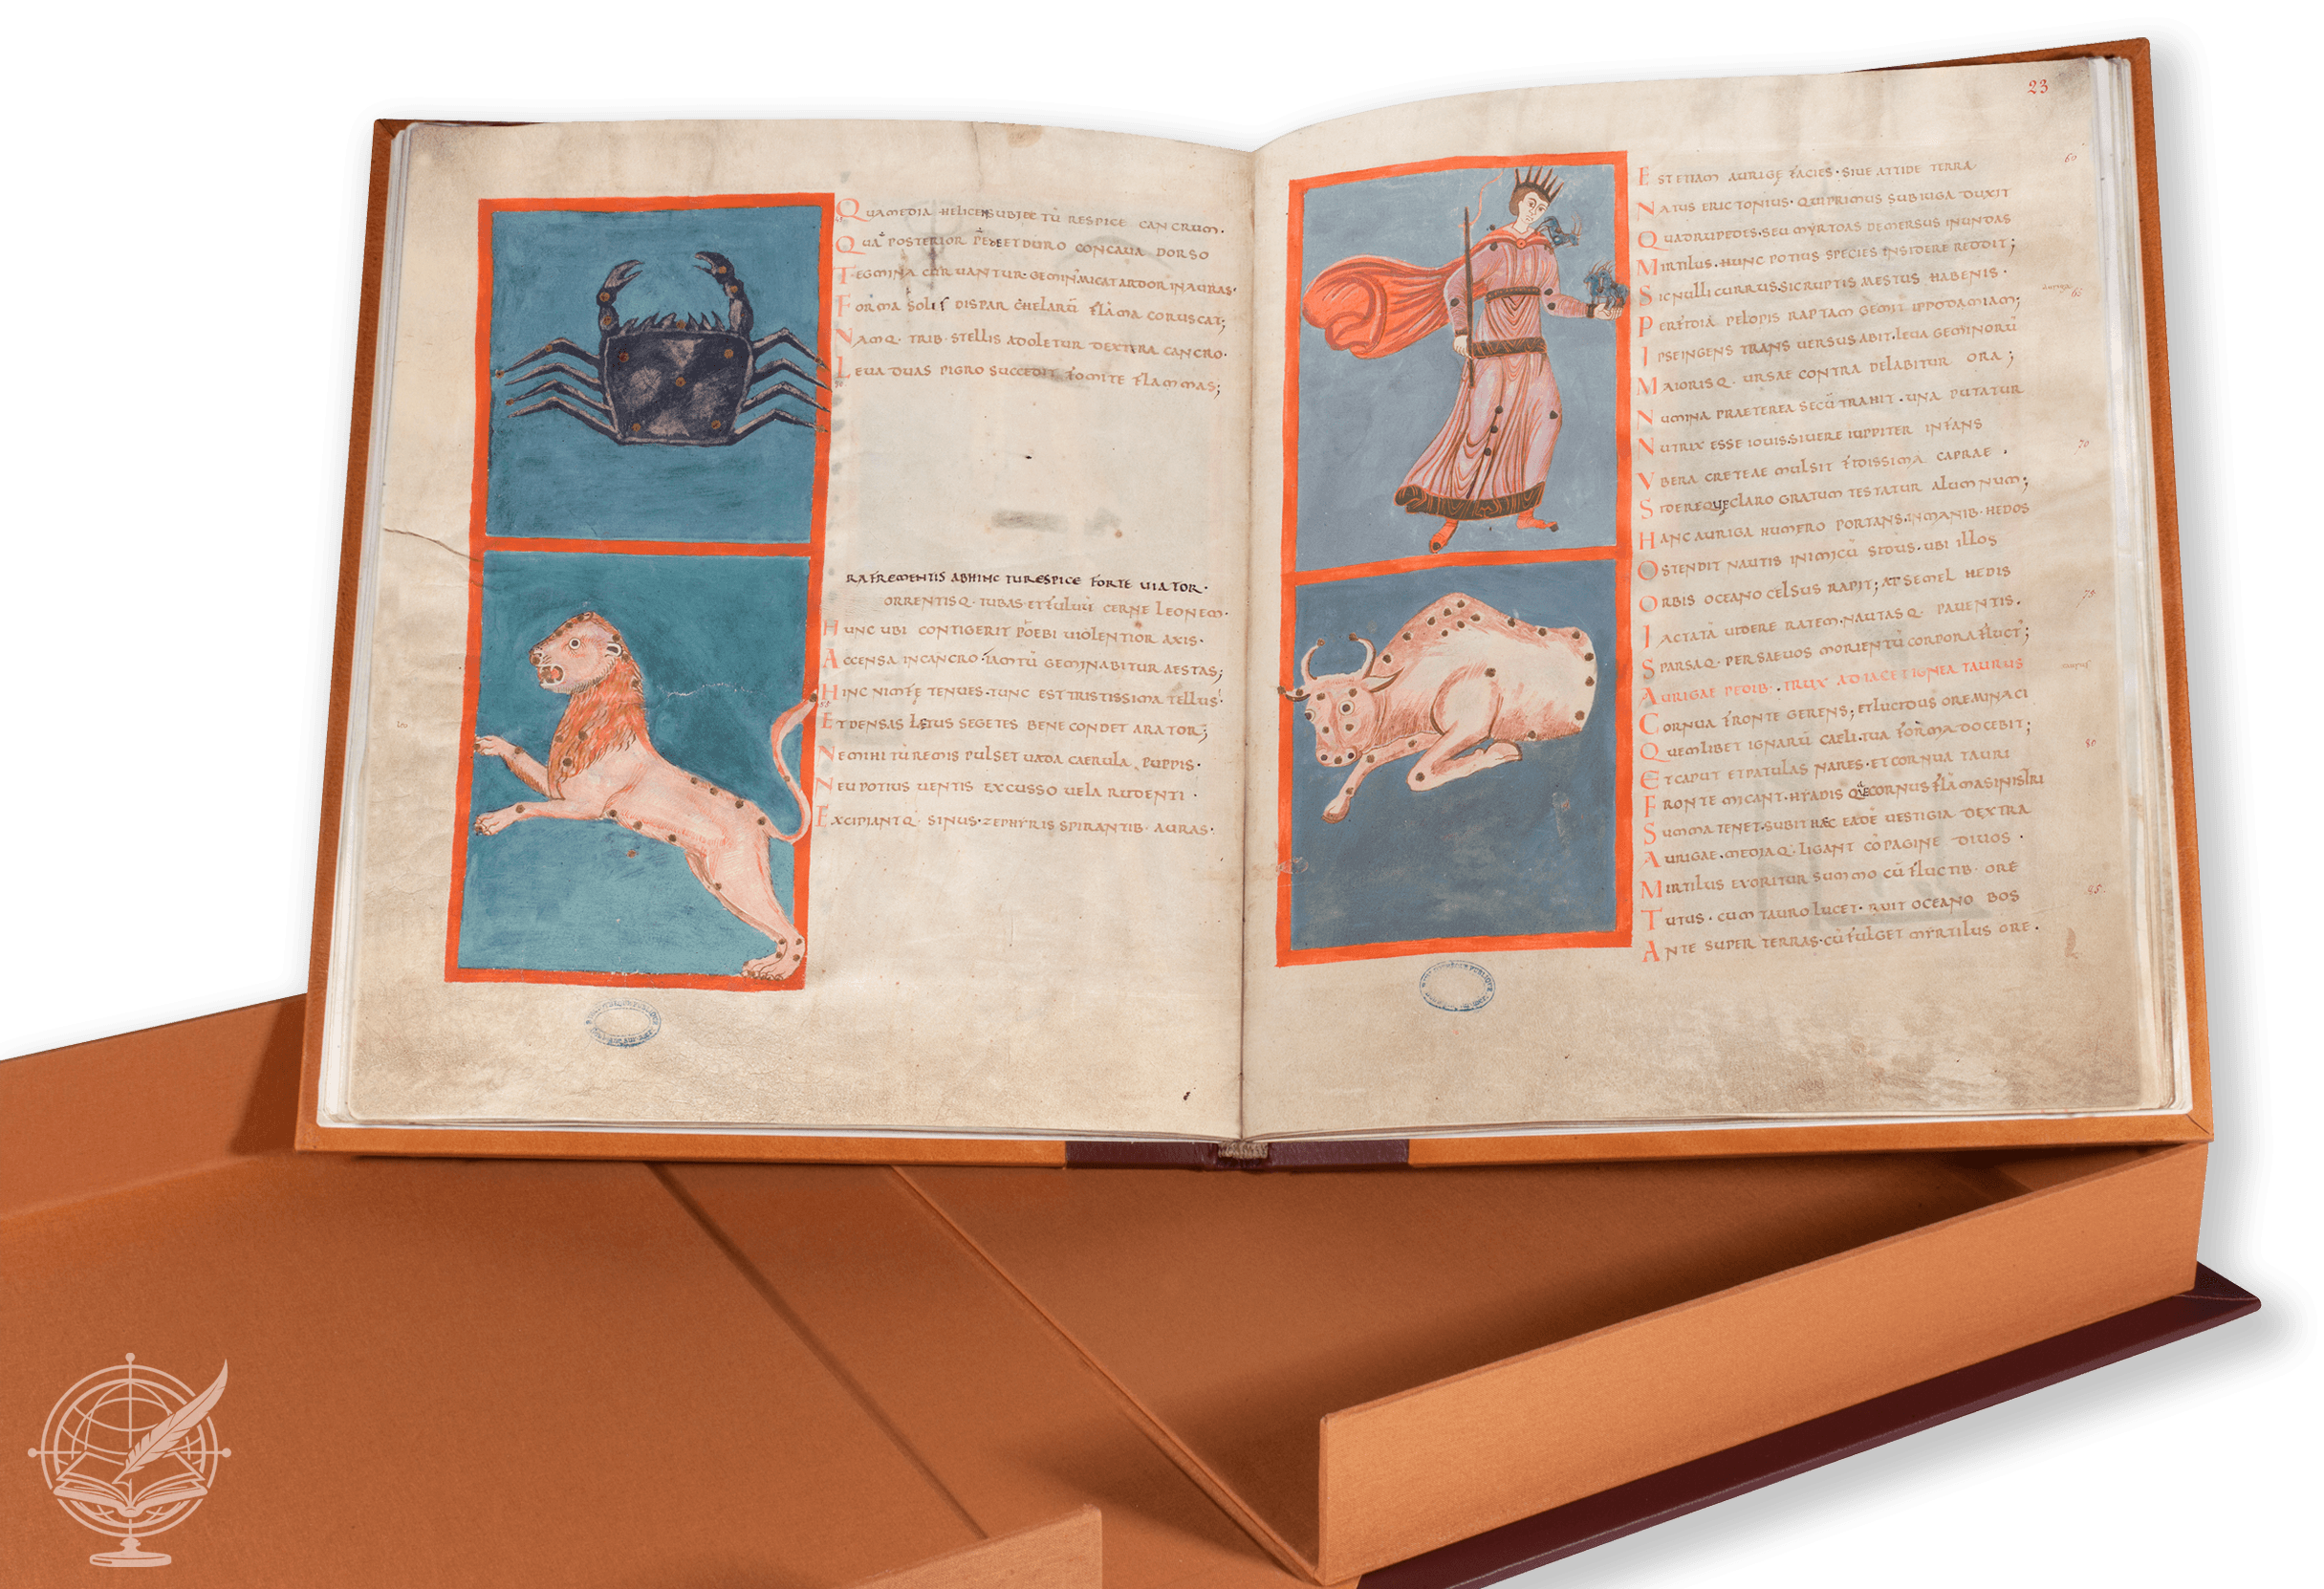 QUA MEDIA HELICEN SUBIECTŪ RESPICE CANCRUM.
QUA POSTERIOR PEDE ET DURO CONCAVA DORSO
TEGMINA CURVANTUR. GEMIN MICAT ARDOR IN AURAS.
FORMA SOLI DISPAR CHELARŪ FLĀMA CORUSCAT;
NAMQ. TRIB. STELLIS ADOLETUR DEXTRA CANCRO.
LEVA DUAS PIGRO SUCCEDIT FOMITE FLAMMAS;
RA FREMENTIS ABHINC TU RESPICE FORTE VIATOR.
ORRENTISQ. IUBAS. ET FULVŪ CERNE LEONEM.
HUNC UBI CONTIGERIT PŌEBI VIOLENTIOR AXIS.
ACCENSA IN CANCRO. IAM TŪ GEMINABITUR AESTAS;
HINC NIMFĘ TENUES. TUNC EST TRISTISSIMA TELLUS.
ET DENSAS LETUS SEGETES BENE CONDET ARATOR;
NE MIHI TŪ REMIS PULSET VADA CAERULA PUPPIS.
NEU POTIUS VENTIS EXCUSSO VELA RUDENTI.
EXCIPIANTQ. SINUS. ZEPHYRIS SPIRANTIB. AURAS.
leo
23
EST ETIAM AURIGĘ FACIES. SIVE ATTIDE TERRA
60
NATUS ERICTONIUS. QUI PRIMUS SUB IUGA DUXIT
QUADRUPEDES. SEU MYRTOAS DEMERSUS IN UNDAS
MIRTILUS. HUNC POTIUS SPECIES IN SIDERE REDDIT;
SIC NULLI CURRUS. SIC RUPTIS MESTUS HABENIS.
65
PERFIDIĀ PELOPIS RAPTAM GEMIT IPPODAMIAM;
IPSE INGENS TRANSVERSUS ABIT. LEVA GEMINORŪ
MAIORISQ. URSAE CONTRA DELABITUR ORA;
NUMINA PRAETEREA SECŪ TRAHIT. UNA PUTATUR
NUTRIX ESSE IOVIS. SI VERE IUPPITER INFANS
70
VBERA CRETEAE MULSIT FIDISSIMA CAPRAE.
SIDEREQUE CLARO GRATUM TESTATUR ALUMNUM;
HANC AURIGA HUMERO PORTANS. IN MANIB. HEDOS
OSTENDIT NAUTIS INIMICŪ SIDUS. UBI ILLOS
ORBIS OCEANO CELSUS RAPIT; AT SEMEL HEDIS
75
IACTATĀ VIDERE RATEM. NAUTASQ. PAVENTIS.
SPARSAQ. PER SAEVOS MORIENTŪ CORPORA FLUCT;
AURIGAE PEDIB. TRUX ADIACET IGNEA TAURUS
taurus
CORNUA FRONTE GERENS; ET LUCIDUS ORE MINACI
QUEMLIBET IGNARŪ CAELI. TUA FORMA DOCEBIT;
80
ET CAPUT ET PATULAS NARES. ET CORNUA TAURI
FRONTE MICANT. HYADIS QUE CORNUS FLĀMA SINISTRI
SUMMA TENET. SUBIT HAEC EADĒ VESTIGIA DEXTRA
AURIGAE. MEDIAQ. LIGANT CŌPAGINE DIVOS.
MIRTILUS EXORITUR SUMMO CŪ FLUCTIB. ORE
85
TUTUS. CUM TAURO LUCET. RUIT OCEANO BOS
ANTE SUPER TERRAS. CŪ FULGET MYRTILUS ORE.